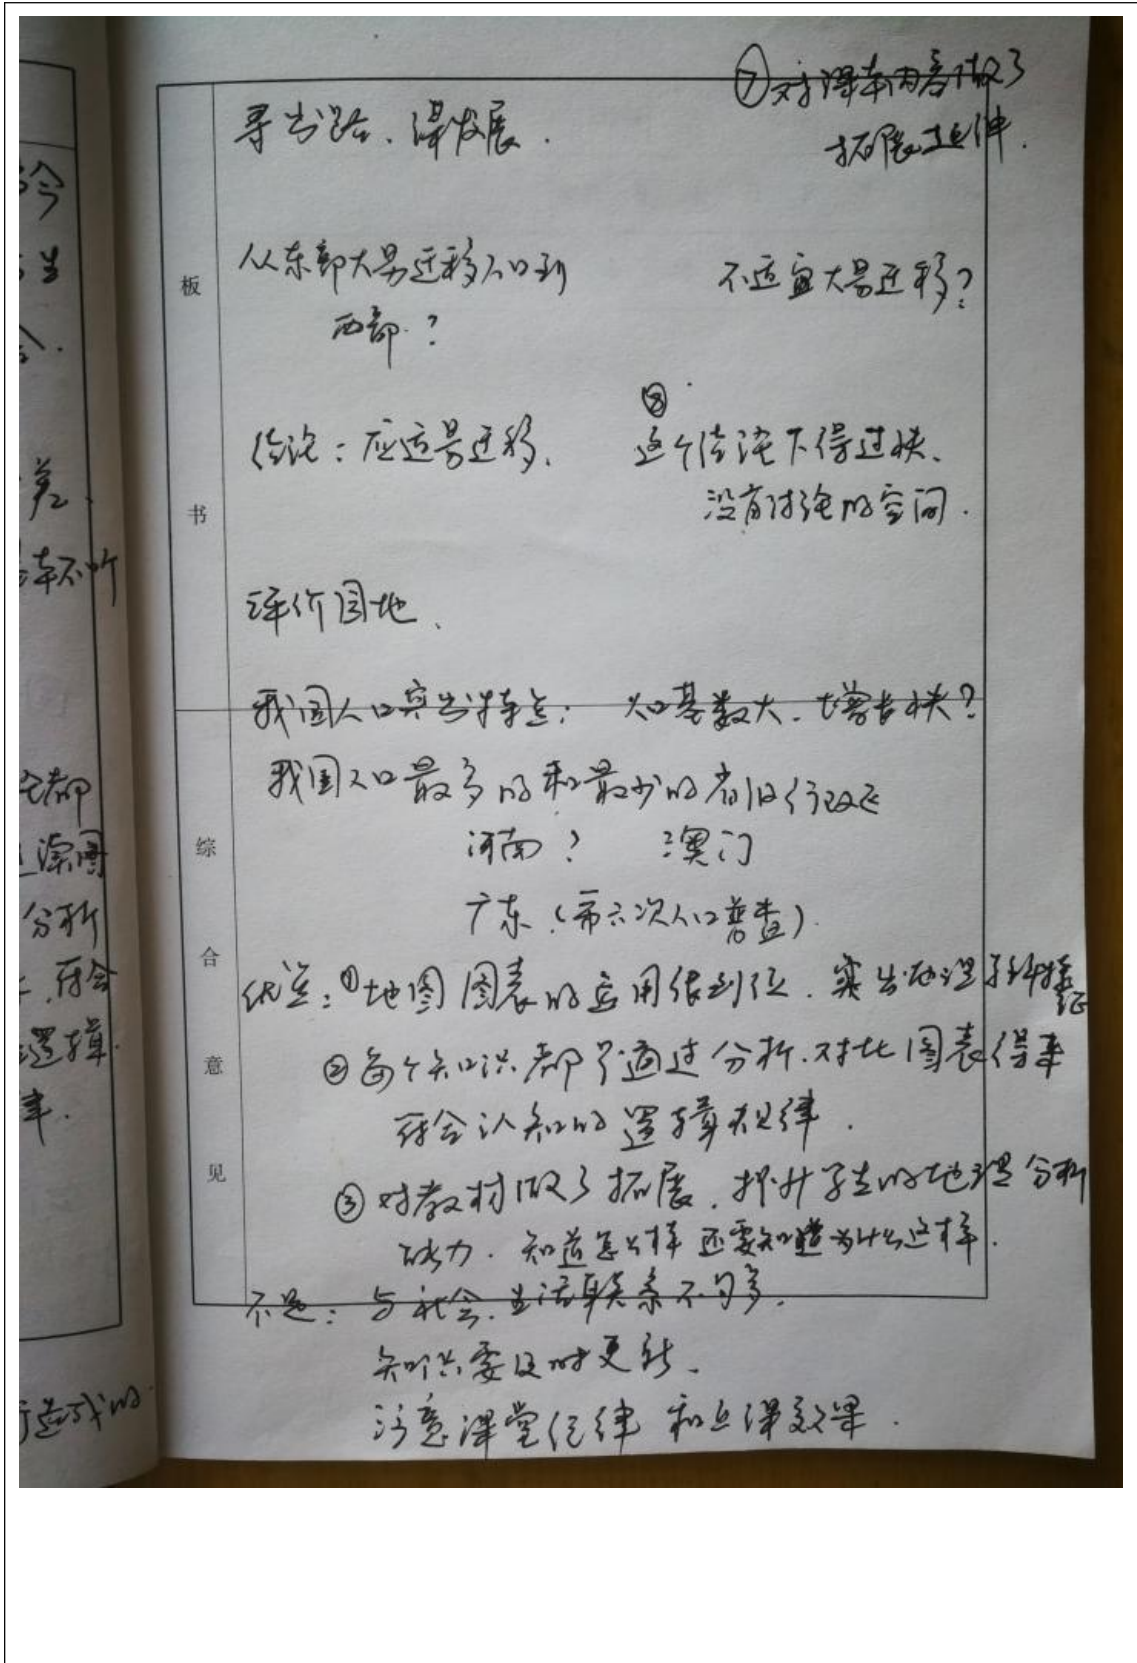 ⑦对课本内容做了
拓展延伸.
寻出路、谋发展.
从东部大量迁移人口到
西部.?
不适宜大量迁移?
板
⑧
结论:应适量迁移、
这个结论下得过快、
没有讨论的空间.
书
评价园地、
我国人口突出特点: 人口基数大、增长快?
我国人口最多的和最少的省级行政区
河南? 澳门
综
广东(第六次人口普查).
合
优点:①地图图表的应用很到位、突出地理学科特征
意
②每个知识都是通过分析、对比图表得来
符合认知的逻辑规律.
见
③对教材做了拓展、提升学生的地理分析
能力. 知道怎么样还要知道为什么这样.
不足: 与社会、生活联系不够多.
知识要及时更新、
注意课堂纪律和上课效果.
今
生
差、
本不听
都
图
分析
符合
逻辑
造成的